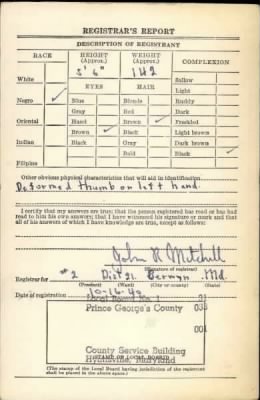 REGISTRAR'S REPORT
DESCRIPTION OF REGISTRANT
RACE HEIGHT (Approx.) WEIGHT (Approx.) COMPLEXION
5' 6" 142
White Sallow
EYES HAIR Light
Negro ✓ Blue Blonde Ruddy
Gray Red Dark
Oriental Hazel Brown ✓ Freckled
Brown ✓ Black Light brown
Indian Black Gray Dark brown
Bald Black ✓
Filipino
Other obvious physical characteristics that will aid in identification
Deformed thumb on left hand.
I certify that my answers are true; that the person registered has read or has had read to him his own answers; that I have witnessed his signature or mark and that all of his answers of which I have knowledge are true, except as follows:
John R Mitchell
(Signature of registrar)
Registrar for #2 Dist 21. Berwyn Md.
(Precinct) (Ward) (City or county) (State)
Date of registration 10-16-40
Local Board No. 1 31
Prince George's County 033
001
County Service Building
Hyattsville, Maryland
(STAMP OF LOCAL BOARD)
(The stamp of the Local Board having jurisdiction of the registrant shall be placed in the above space.)